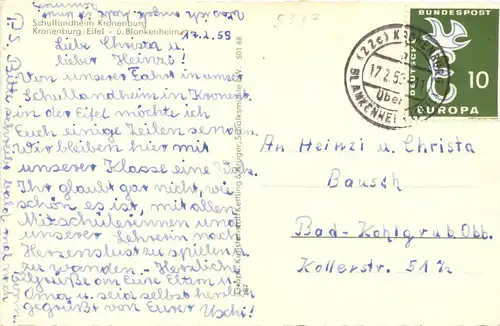 Schullandheim Kronenburg
Kronenburg/Eifel - ü. Blankenheim
17.2.59
Liebe Christa u.
lieber Heinzi!
Von unserer Fahrt in unser
Schullandheim in Kronen
in der Eifel möchte ich
Euch einige Zeilen senden
Wir bleiben hier mit
unserer Klasse eine
Ihr glaubt gar nicht, wie
schön es ist, mit allen
Mitschülerinnen und
unserer Lehrerin nach
Herzenslust zu spielen u.
zu wandern. - Herzliche
Grüße an Eure Eltern u.
Oma u. seid selbst herzlich
gegrüßt von Eurer Uschi!
P.S. Bitte schreibt doch
501-88
5
DEUTSCHE
BUNDESPOST
10
EUROPA
17.2.59
über
BLANKENHEIM
An Heinzi u. Christa
Bausch
Bad-Kohlgrub Obb.
Kollerstr. 51½